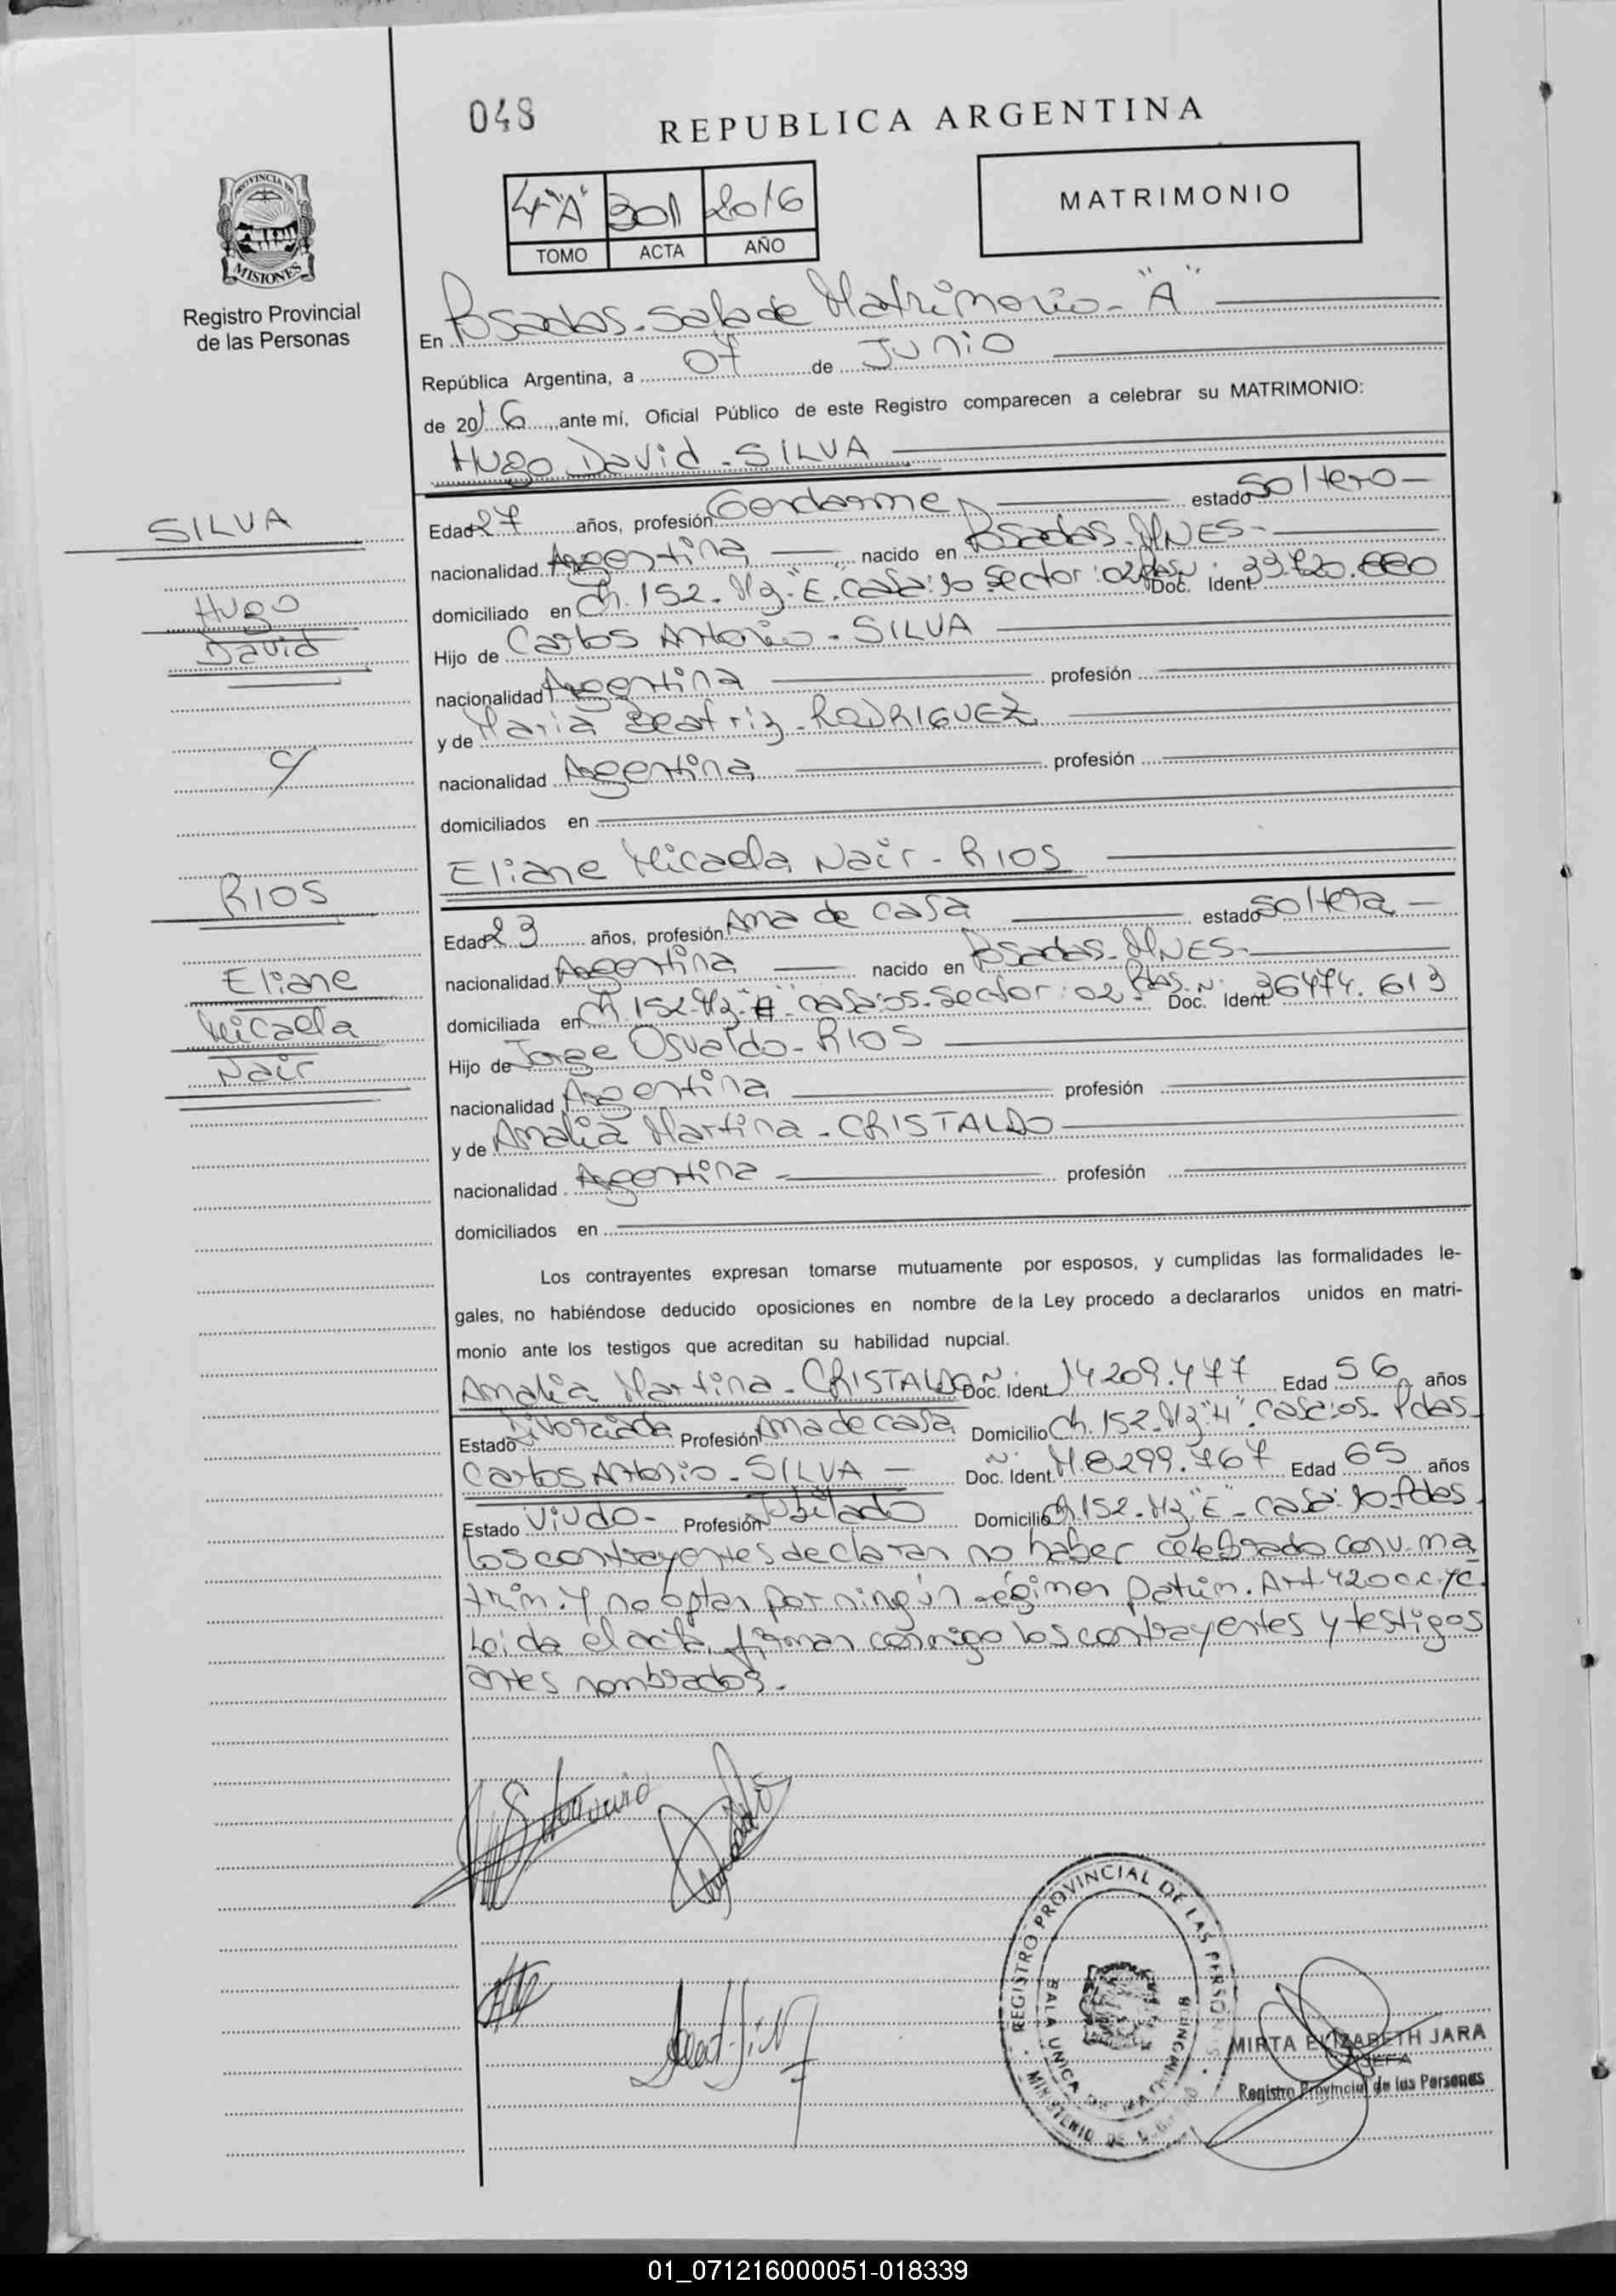 048
REPUBLICA ARGENTINA
4º "A" 301 2016
TOMO ACTA AÑO
MATRIMONIO
PROVINCIA DE
MISIONES
Registro Provincial
de las Personas
En Posadas - Sala de Matrimonio - "A"
República Argentina, a 07 de Junio
de 2016, ante mí, Oficial Público de este Registro comparecen a celebrar su MATRIMONIO:
Hugo David - SILVA
SILVA
Hugo
David
c/
RIOS
Eliane
Micaela
Nair
Edad 27 años, profesión Gendarme estado Soltero -
nacionalidad Argentina nacido en Posadas - MNES -
domiciliado en Ch. 152 - Mz. "E" - Casa: 10 Sector: 02 Doc. Ident.
Hijo de Carlos Antonio - SILVA
nacionalidad Argentina profesión
y de Maria Beatriz - RODRIGUEZ
nacionalidad Argentina profesión
domiciliados en
Eliane Micaela Nair - RIOS
Edad 23 años, profesión Ama de casa estado Soltera -
nacionalidad Argentina nacido en Posadas - MNES -
domiciliada en Ch. 152 - Mz. casa: 05 - Sector: 02 - Pdas. Nº: Doc. Ident. 36474.613
Hijo de Jorge Osvaldo - RIOS
nacionalidad Argentina profesión
y de Amalia Martina - CRISTALDO
nacionalidad Argentina profesión
domiciliados en
Los contrayentes expresan tomarse mutuamente por esposos, y cumplidas las formalidades le-
gales, no habiéndose deducido oposiciones en nombre de la Ley procedo a declararlos unidos en matri-
monio ante los testigos que acreditan su habilidad nupcial.
Amalia Martina - CRISTALDO Doc. Ident. 14209.477 Edad 56 años
Estado Divorciada Profesión Ama de casa Domicilio Ch. 152 - Mz "H" - Casa: 05 - Pdas -
Carlos Antonio - SILVA - Doc. Ident. M.8299.767 Edad 65 años
Estado Viudo - Profesión Jubilado Domicilio Ch 152 - Mz "E" - Casa: 10 - Pdas.
Los contrayentes declaran no haber celebrado conv. ma
trim. y no optan por ningún régimen Patrim. Art 420 C.C.yC.
Leida el acta, firman conmigo los contrayentes y testigos
antes nombrados.
REGISTRO PROVINCIAL DE LAS PERSONAS
SALA UNICA DE
MINISTERIO DE
MIRTA ELIZABETH JARA
JEFA
Registro Provincial de las Personas
01_071216000051-018339